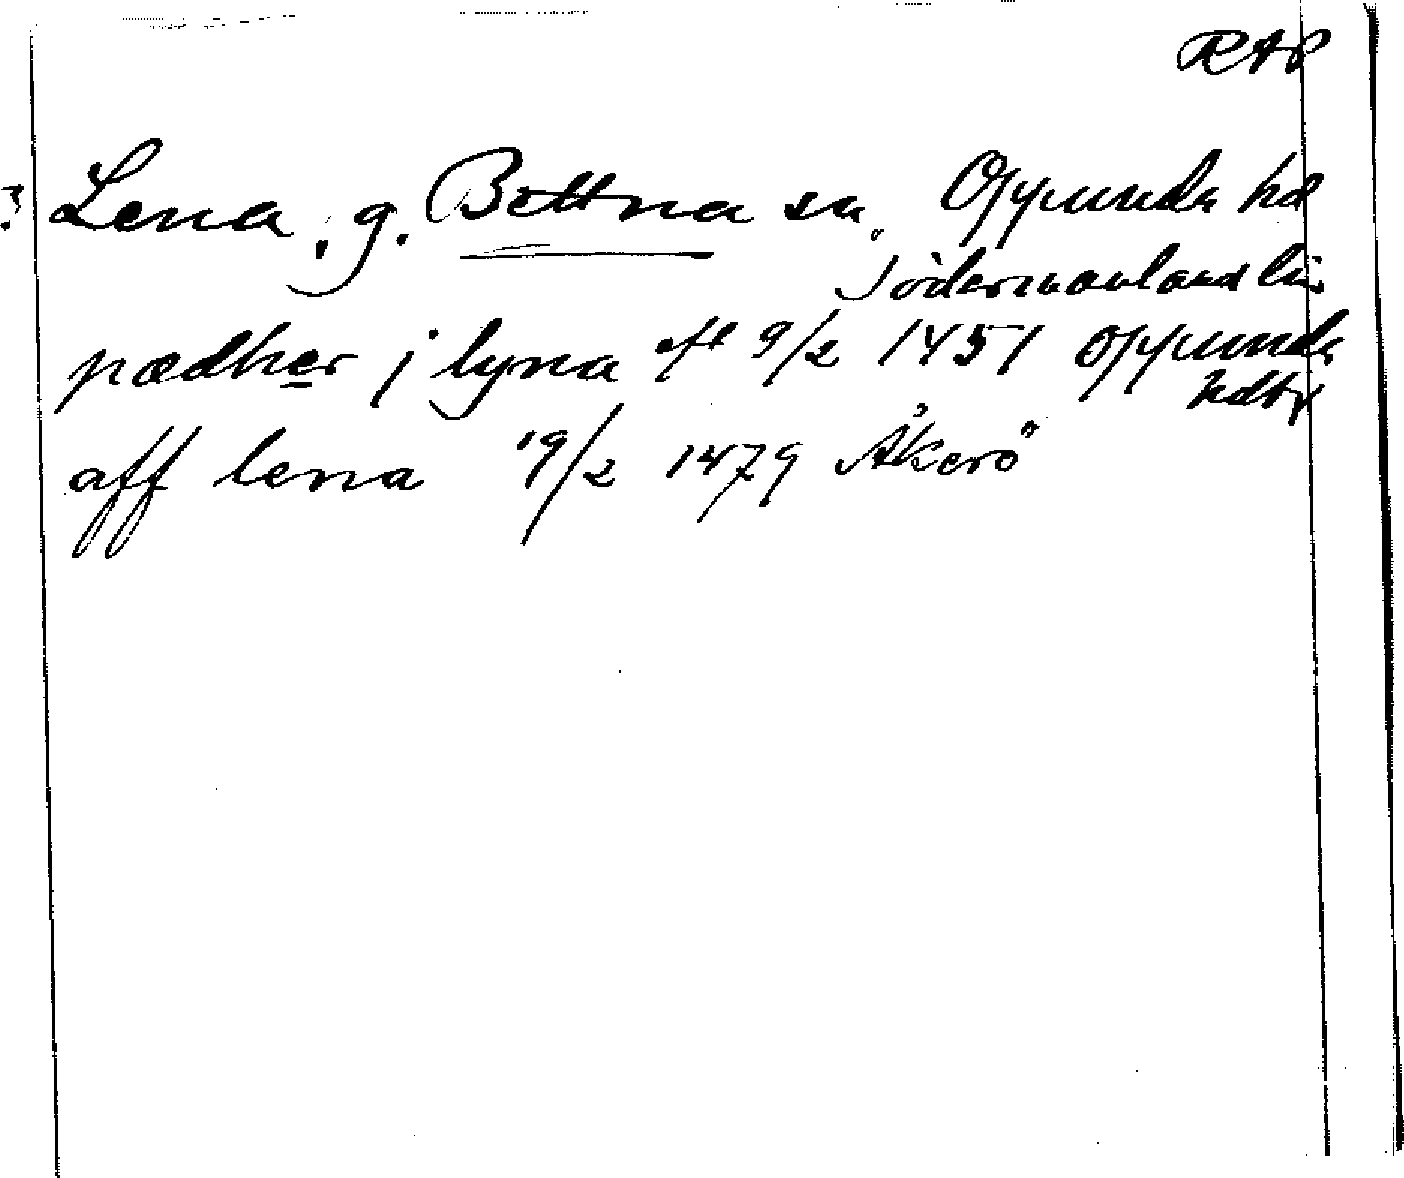 RAP
? Lena, g. Bettna sn, Oppunda hd
Södermanland län
pædher j lyna eft 9/2 1451 Oppunda
hdtg
aff lena 19/2 1479 Åkerö